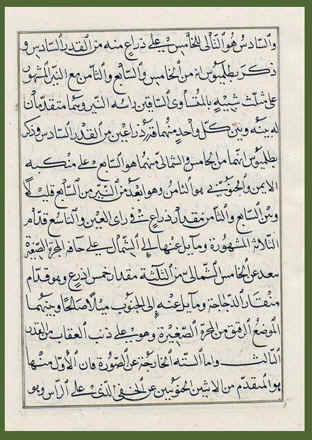 والسادس هو التالى للخامس على ذراع منه من القدر السادس و
ذكر بطلميوس انه من الخامس والسابع والثامن مع النير المشهور
على مثلث شبيه بالمتساوى الساقين راسه النير وهما متقدمان
له بينه وبين كل واحد منهما قدر ذراعين من القدر السادس وذكر
بطلميوس انهما من الخامس والشمالى منهما هو السابع على منكبه
الايمن والجنوبى هو الثامن وهو ابعد من النير من السابع قليلا
وبين السابع والثامن مقدار ذراع فى راى العين والتاسع قدام
الثلاثة المشهورة ومايل عنها الى الشمال على حافة المجرة الصغيرة
بعده عن الخامس الشمالى من الثلثة مقدار خمس اذرع وهو قدام
منقار الدجاجة ومايل عنه الى الجنوب ميلا صالحا وبينهما
الموضع الرقيق من المجرة الصغيرة وهو على ذنب العقاب من القدر
الثالث واما الستة الخارجة عن الصورة فان الاول منها
هو المتقدم من الاثنين الجنوبيين عن الخفى الذى على الراس وهو